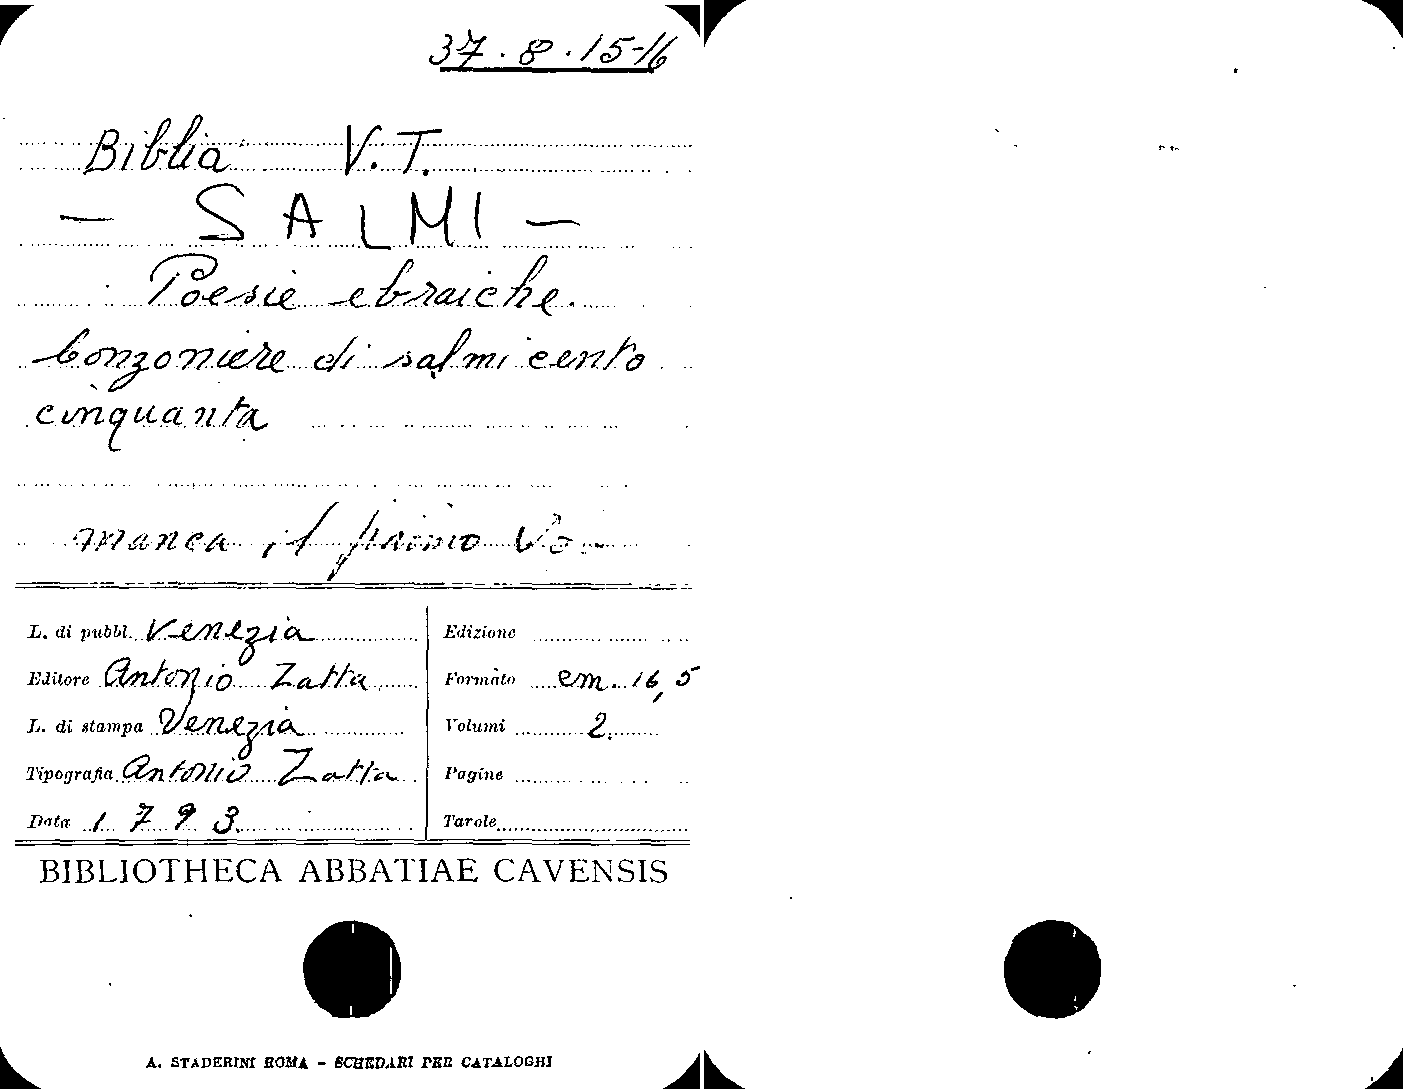 37.8.15-16
Biblia V.T.
- SALMI -
Poesie ebraiche.
Conzoniere di salmi cento
cinquanta
manca il primo Vo.
L. di pubbl. Venezia
Editore Antonio Zatta
L. di stampa Venezia
Tipografia Antonio Zatta
Data 1793
Edizione
Formato cm. 16,5
Volumi 2.
Pagine
Tavole
BIBLIOTHECA ABBATIAE CAVENSIS
A. STADERINI ROMA - SCHEDARI PER CATALOGHI